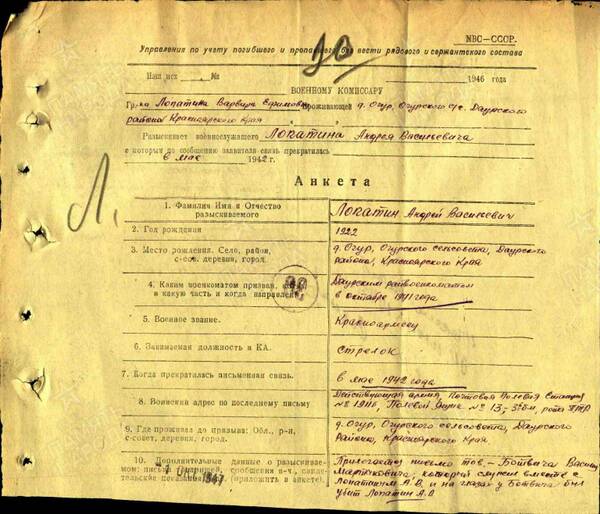 МВС—СССР.
Управления по учету погибшего и пропавшего без вести рядового и сержантского состава
Наш исх № 1946 года
ВОЕННОМУ КОМИССАРУ
Гр-ка Лопатина Варвара Ефимовна проживающей д. Огур, Огурского с/с. Даурского
района Красноярского края
Разыскивает военнослужащего Лопатина Андрея Васильевича
с которым до сообщению заявителя связь прекратилась
в мае 1942 г.
Л.
Анкета
1. Фамилия Имя и Отчество
разыскиваемого
Лопатин Андрей Васильевич
2. Год рождения
1922
3. Место рождения. Село, район,
с-сов. деревня, город.
д. Огур, Огурского сельсовета, Даурского
района, Красноярского Края
4. Каким военкоматом призван,
в какую часть и когда направлен
Даурским райвоенкоматом
в октябре 1941 года
5. Военное звание.
Красноармеец
6. Занимаемая должность в КА.
Стрелок
7. Когда прекратилась письменная связь.
в мае 1942 года
8. Воинский адрес по последнему письму
Действующая армия, Почтовая Полевая Станция
9. Где проживал до призыва: Обл., р-н,
с-совет, деревня, город.
д. Огур, Огурского сельсовета, Даурского
Района, Красноярского Края
10. Дополнительные данные о разыскиваемом:
1947
(приложить к анкете).
Прилагается письмо тов. Ботвича
Мартыновича, который служил вместе с
Лопатиным А.В. и на глазах у Ботвича был
убит Лопатин А.В